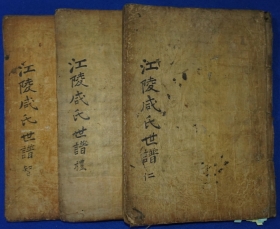 江陵咸氏世譜 仁
江陵咸氏世譜 禮
江陵咸氏世譜 智